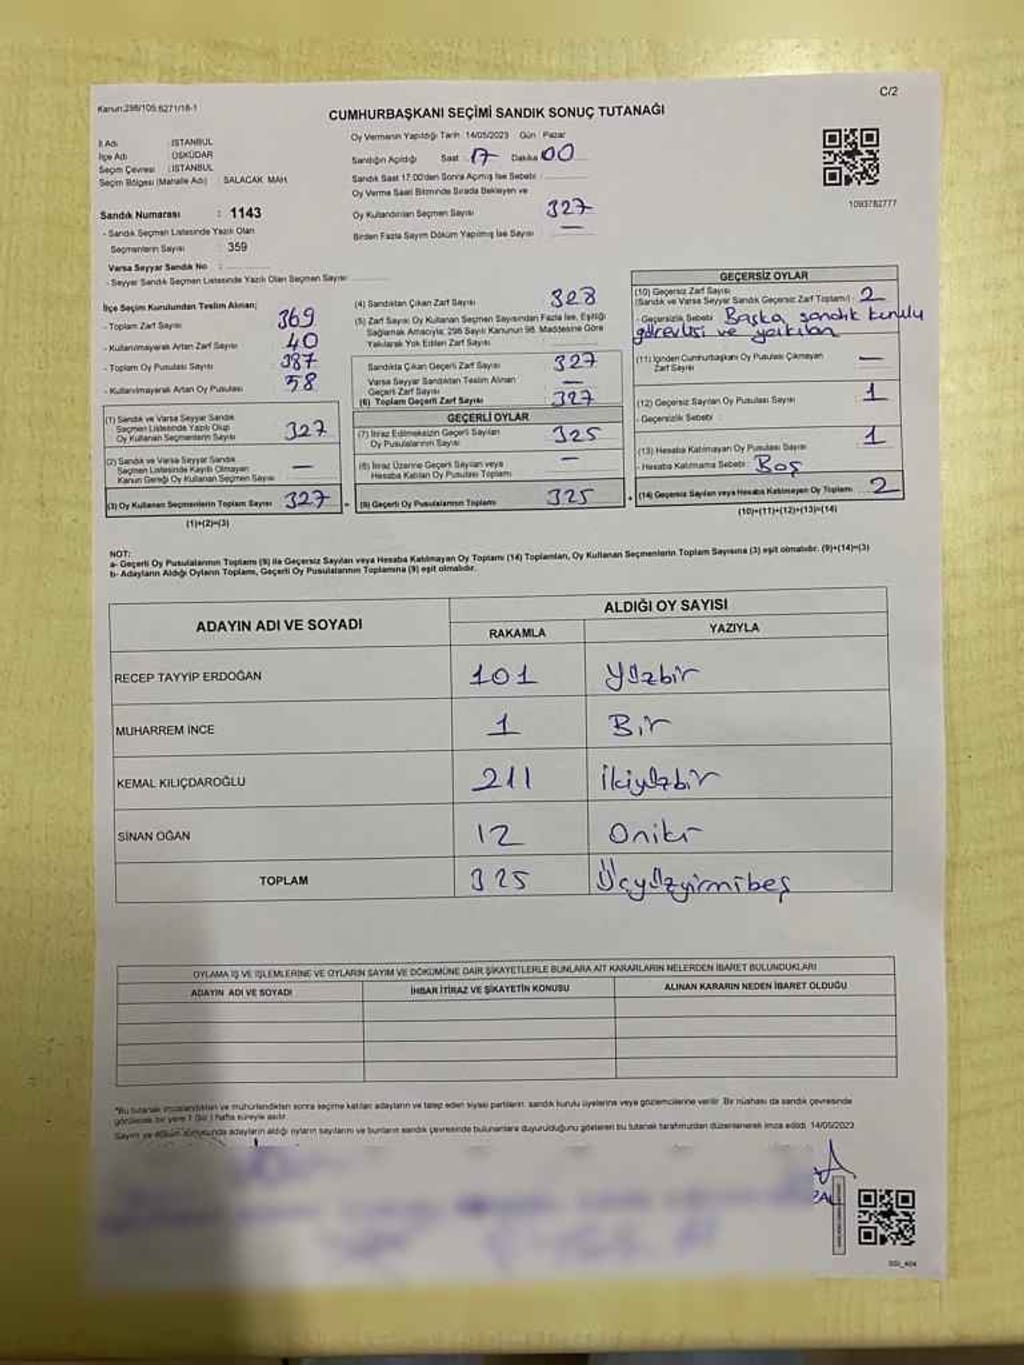 C/2
Kanun:298/105;6271/18-1
CUMHURBAŞKANI SEÇİMİ SANDIK SONUÇ TUTANAĞI
İl Adı : İSTANBUL
İlçe Adı : ÜSKÜDAR
Seçim Çevresi : İSTANBUL
Seçim Bölgesi (Mahalle Adı) : SALACAK MAH
Sandık Numarası : 1143
- Sandık Seçmen Listesinde Yazılı Olan
Seçmenlerin Sayısı : 359
Varsa Seyyar Sandık No :
- Seyyar Sandık Seçmen Listesinde Yazılı Olan Seçmen Sayısı:
Oy Vermenin Yapıldığı Tarih: 14/05/2023 Gün : Pazar
Sandığın Açıldığı Saat 17 Dakika 00
Sandık Saat 17:00'den Sonra Açılmış İse Sebebi :
Oy Verme Saati Bitiminde Sırada Bekleyen ve
Oy Kullandırılan Seçmen Sayısı 327
Birden Fazla Sayım Döküm Yapılmış İse Sayısı —
1093782777
İlçe Seçim Kurulundan Teslim Alınan;
- Toplam Zarf Sayısı 369
- Kullanılmayarak Artan Zarf Sayısı 40
- Toplam Oy Pusulası Sayısı 387
- Kullanılmayarak Artan Oy Pusulası 58
(1) Sandık ve Varsa Seyyar Sandık
Seçmen Listesinde Yazılı Olup
Oy Kullanan Seçmenlerin Sayısı 327
(2) Sandık ve Varsa Seyyar Sandık
Seçmen Listesinde Kayıtlı Olmayan
Kanun Gereği Oy Kullanan Seçmen Sayısı —
(3) Oy Kullanan Seçmenlerin Toplam Sayısı 327
(1)+(2)=(3)
(4) Sandıktan Çıkan Zarf Sayısı 328
(5) Zarf Sayısı Oy Kullanan Seçmen Sayısından Fazla İse, Eşitliği
Sağlamak Amacıyla; 298 Sayılı Kanunun 98. Maddesine Göre
Yakılarak Yok Edilen Zarf Sayısı
Sandıkta Çıkan Geçerli Zarf Sayısı 327
Varsa Seyyar Sandıktan Teslim Alınan
Geçerli Zarf Sayısı —
(6) Toplam Geçerli Zarf Sayısı 327
GEÇERLİ OYLAR
(7) İtiraz Edilmeksizin Geçerli Sayılan
Oy Pusulalarının Sayısı 325
(8) İtiraz Üzerine Geçerli Sayılan veya
Hesaba Katılan Oy Pusulası Toplamı —
= (9) Geçerli Oy Pusulalarının Toplamı 325
GEÇERSİZ OYLAR
(10) Geçersiz Zarf Sayısı
(Sandık ve Varsa Seyyar Sandık Geçersiz Zarf Toplamı) : 2
- Geçersizlik Sebebi: Başka sandık kurulu
görevlisi ve yakılan
(11) İçinden Cumhurbaşkanı Oy Pusulası Çıkmayan
Zarf Sayısı —
(12) Geçersiz Sayılan Oy Pusulası Sayısı 1
- Geçersizlik Sebebi :
(13) Hesaba Katılmayan Oy Pusulası Sayısı 1
- Hesaba Katılmama Sebebi : Boş
+ (14) Geçersiz Sayılan veya Hesaba Katılmayan Oy Toplamı 2
(10)+(11)+(12)+(13)=(14)
NOT:
a- Geçerli Oy Pusulalarının Toplamı (9) ile Geçersiz Sayılan veya Hesaba Katılmayan Oy Toplamı (14) Toplamları, Oy Kullanan Seçmenlerin Toplam Sayısına (3) eşit olmalıdır. (9)+(14)=(3)
b- Adayların Aldığı Oyların Toplamı, Geçerli Oy Pusulalarının Toplamına (9) eşit olmalıdır.
ADAYIN ADI VE SOYADI
ALDIĞI OY SAYISI
RAKAMLA YAZIYLA
RECEP TAYYİP ERDOĞAN 101 Yüzbir
MUHARREM İNCE 1 Bir
KEMAL KILIÇDAROĞLU 211 İkiyüzbir
SİNAN OĞAN 12 Oniki
TOPLAM 325 Üçyüzyirmibeş
OYLAMA İŞ VE İŞLEMLERİNE VE OYLARIN SAYIM VE DÖKÜMÜNE DAİR ŞİKAYETLERLE BUNLARA AİT KARARLARIN NELERDEN İBARET BULUNDUKLARI
ADAYIN ADI VE SOYADI İHBAR İTİRAZ VE ŞİKAYETİN KONUSU ALINAN KARARIN NEDEN İBARET OLDUĞU
*Bu tutanak imzalandıktan ve mühürlendikten sonra seçime katılan adayların ve talep eden siyasi partilerin, sandık kurulu üyelerine veya gözlemcilerine verilir. Bir nüshası da sandık çevresinde
görülecek bir yere 1 (bir) hafta süreyle asılır.
Sayım ve döküm sonucunda adayların aldığı oyların sayılarını ve bunların sandık çevresinde bulunanlara duyurulduğunu gösteren bu tutanak tarafımızdan düzenlenerek imza edildi. 14/05/2023